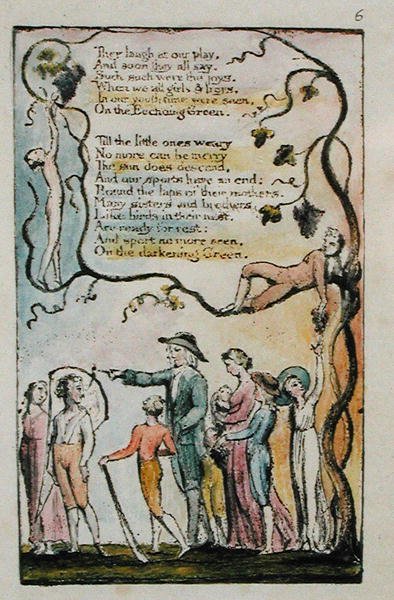 6
They laugh at our play,
And soon they all say.
Such such were the joys.
When we all girls & boys,
In our youth-time were seen,
On the Ecchoing Green.
Till the little ones weary
No more can be merry
The sun does descend,
And our sports have an end:
Round the laps of their mothers,
Many sisters and brothers,
Like birds in their nest,
Are ready for rest:
And sport no more seen,
On the darkening Green.